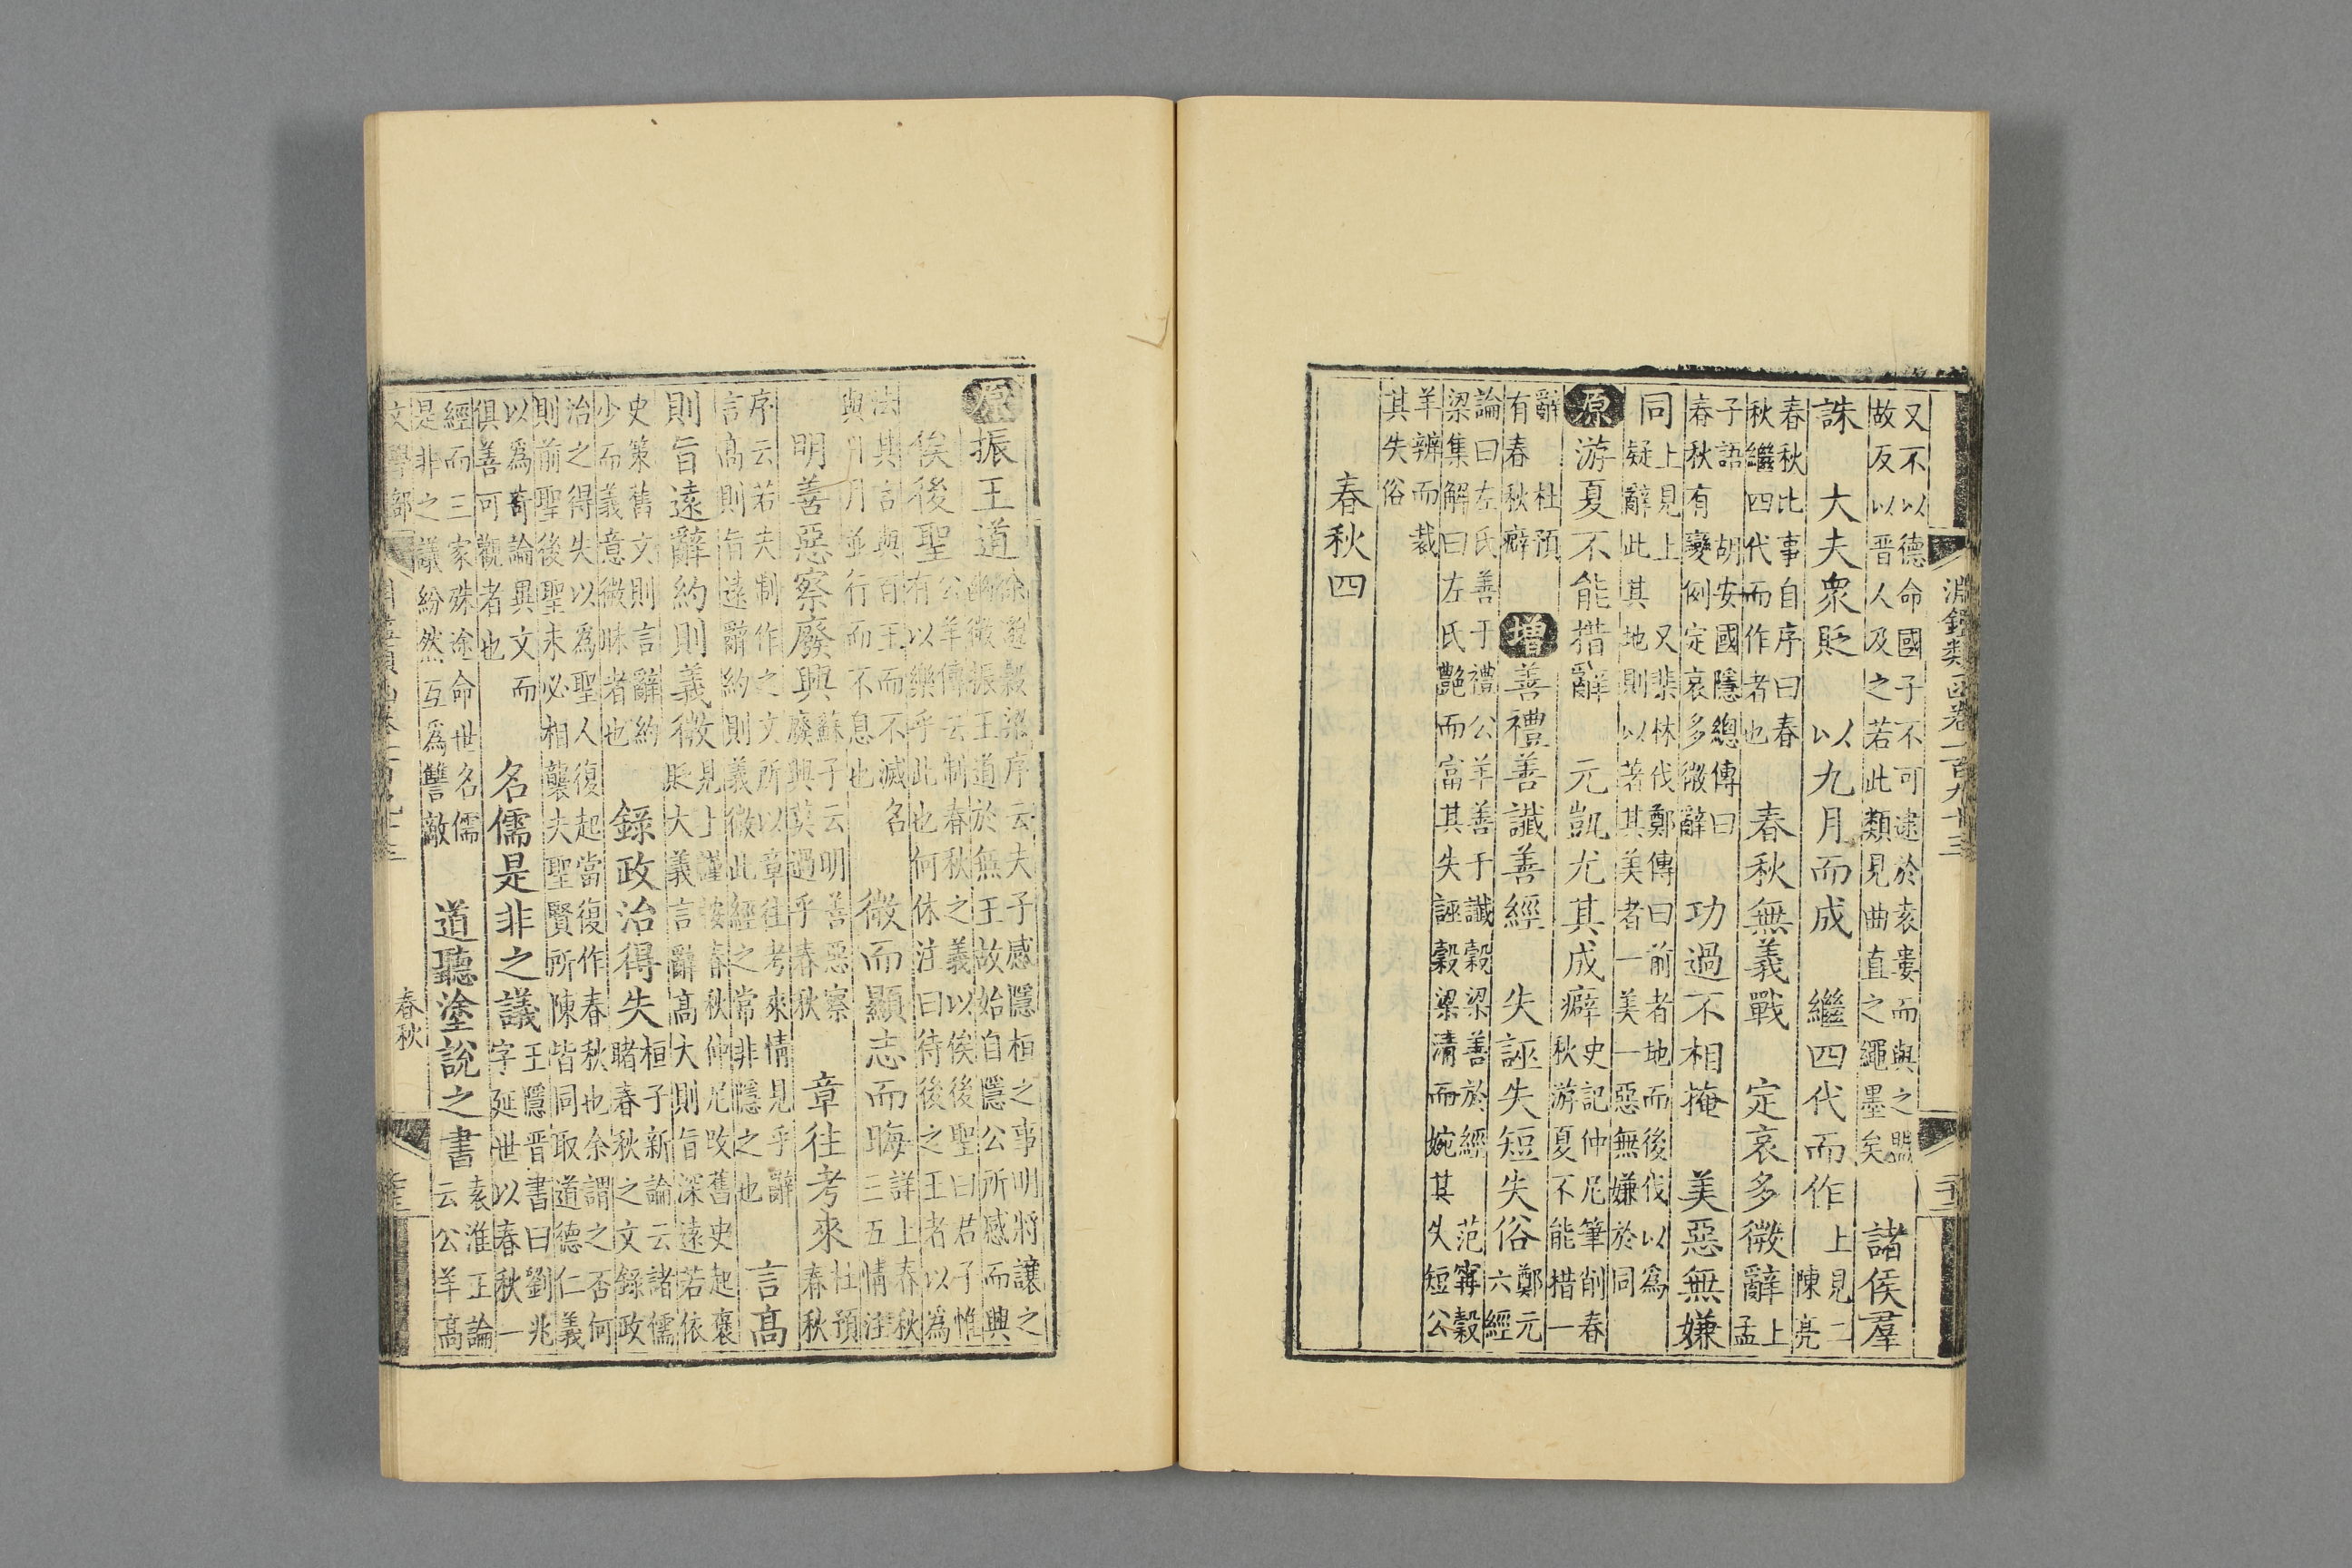 淵鑑類函卷一百九十三
又不以德命國子不可逮於袁婁而與之盟
故反以晋人及之若此類見曲直之繩墨矣
諸侯羣
誅 大夫衆貶 以九月而成 繼四代而作
上見二
陳亮
春秋比事自序曰春
秋繼四代而作者也
春秋無義戰 定哀多微辭
上
孟
子語 胡安國隱總傳曰
春秋有變例定哀多微辭
功過不相掩 美惡無嫌
同
上見上 又棐林伐鄭傳曰前者地而後伐以為
疑辭此其地則以著其美者一美一惡無嫌於同
原
游夏不能措辭 元凱尤其成癖
史記仲尼筆削春
秋游夏不能措一
辭 杜預
有春秋癖
增
善禮善讖善經 失誣失短失俗
鄭元
六經
論曰左氏善于禮公羊善于讖穀梁善於經 范甯穀
梁集解曰左氏艷而富其失誣穀梁清而婉其失短公
羊辨而裁
其失俗
春秋四
原
振王道
徐邈穀梁序云夫子感隱桓之事明將讓之
幽微振王道於無王故始自隱公所感而興
俟後聖
公羊傳云制春秋之義以俟後聖曰若子惟
有以樂乎此也何休注曰待後之王者以為
法其言與百王而不滅名
與日月並行而不息也
微而顯志而晦
詳上春秋
三五情注
明善惡察廢興
蘇子云明善惡察
廢興莫過乎春秋
章往考來
杜預
春秋
序云若夫制作之文所以章往考來情見乎辭
言高則旨遠辭約則義微此經之常非隱之也
言高
則旨遠辭約則義微
見上謹按春秋仲尼改舊史起褒
貶大義言辭高大則旨深遠若依
史策舊文則言辭約
少而義意微昧者也
錄政治得失
桓子新論云諸儒
睹春秋之文錄政
治之得失以為聖人復起當復作春秋也余謂之否何
則前聖後聖未必相襲夫聖賢所陳皆同取道德仁義
以為奇論異文而
俱善可觀者也
名儒是非之議
王隱晋書曰劉兆
字延世以春秋一
經而三家殊途命世名儒
是非之議紛然互為讐敵
道聽塗說之書
袁准正論
云公羊高
春秋